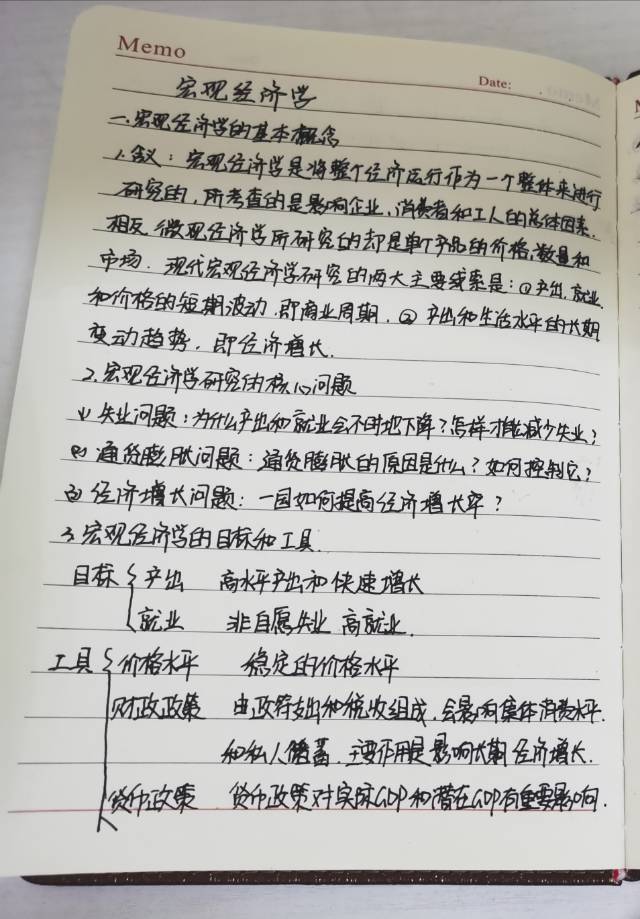 Memo
Date:
宏观经济学
一.宏观经济学的基本概念
1.含义：宏观经济学是将整个经济运行作为一个整体来进行
研究的，所考查的是影响企业、消费者和工人的总体因素.
相反，微观经济学所研究的却是单个产品的价格,数量和
市场. 现代宏观经济学研究的两大主要线索是：①产出、就业、
和价格的短期波动，即商业周期. ②产出和生活水平的长期
变动趋势，即经济增长.
2.宏观经济学研究的核心问题
(1)失业问题：为什么产出和就业会不时地下降？怎样才能减少失业？
(2)通货膨胀问题：通货膨胀的原因是什么？如何控制它？
(3)经济增长问题：一国如何提高经济增长率？
3.宏观经济学的目标和工具.
目标 产出 高水平产出和快速增长
就业 非自愿失业 高就业.
工具 价格水平 稳定的价格水平
财政政策 由政府支出和税收组成，会影响集体消费水平.
和私人储蓄，主要作用是影响长期经济增长.
货币政策 货币政策对实际GDP和潜在GDP有重要影响.